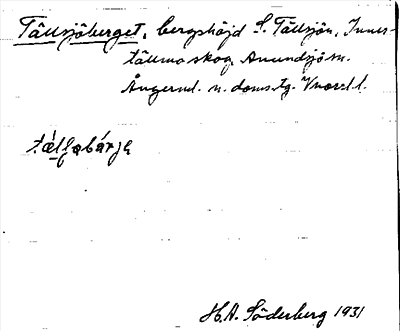 Tällsjöberget, bergshöjd S. Tällsjön, Inner-
tällmo skog, Anundsjö sn.
Ångerml. n. doms.tg. Vnorrl l.
H.A. Söderberg 1931